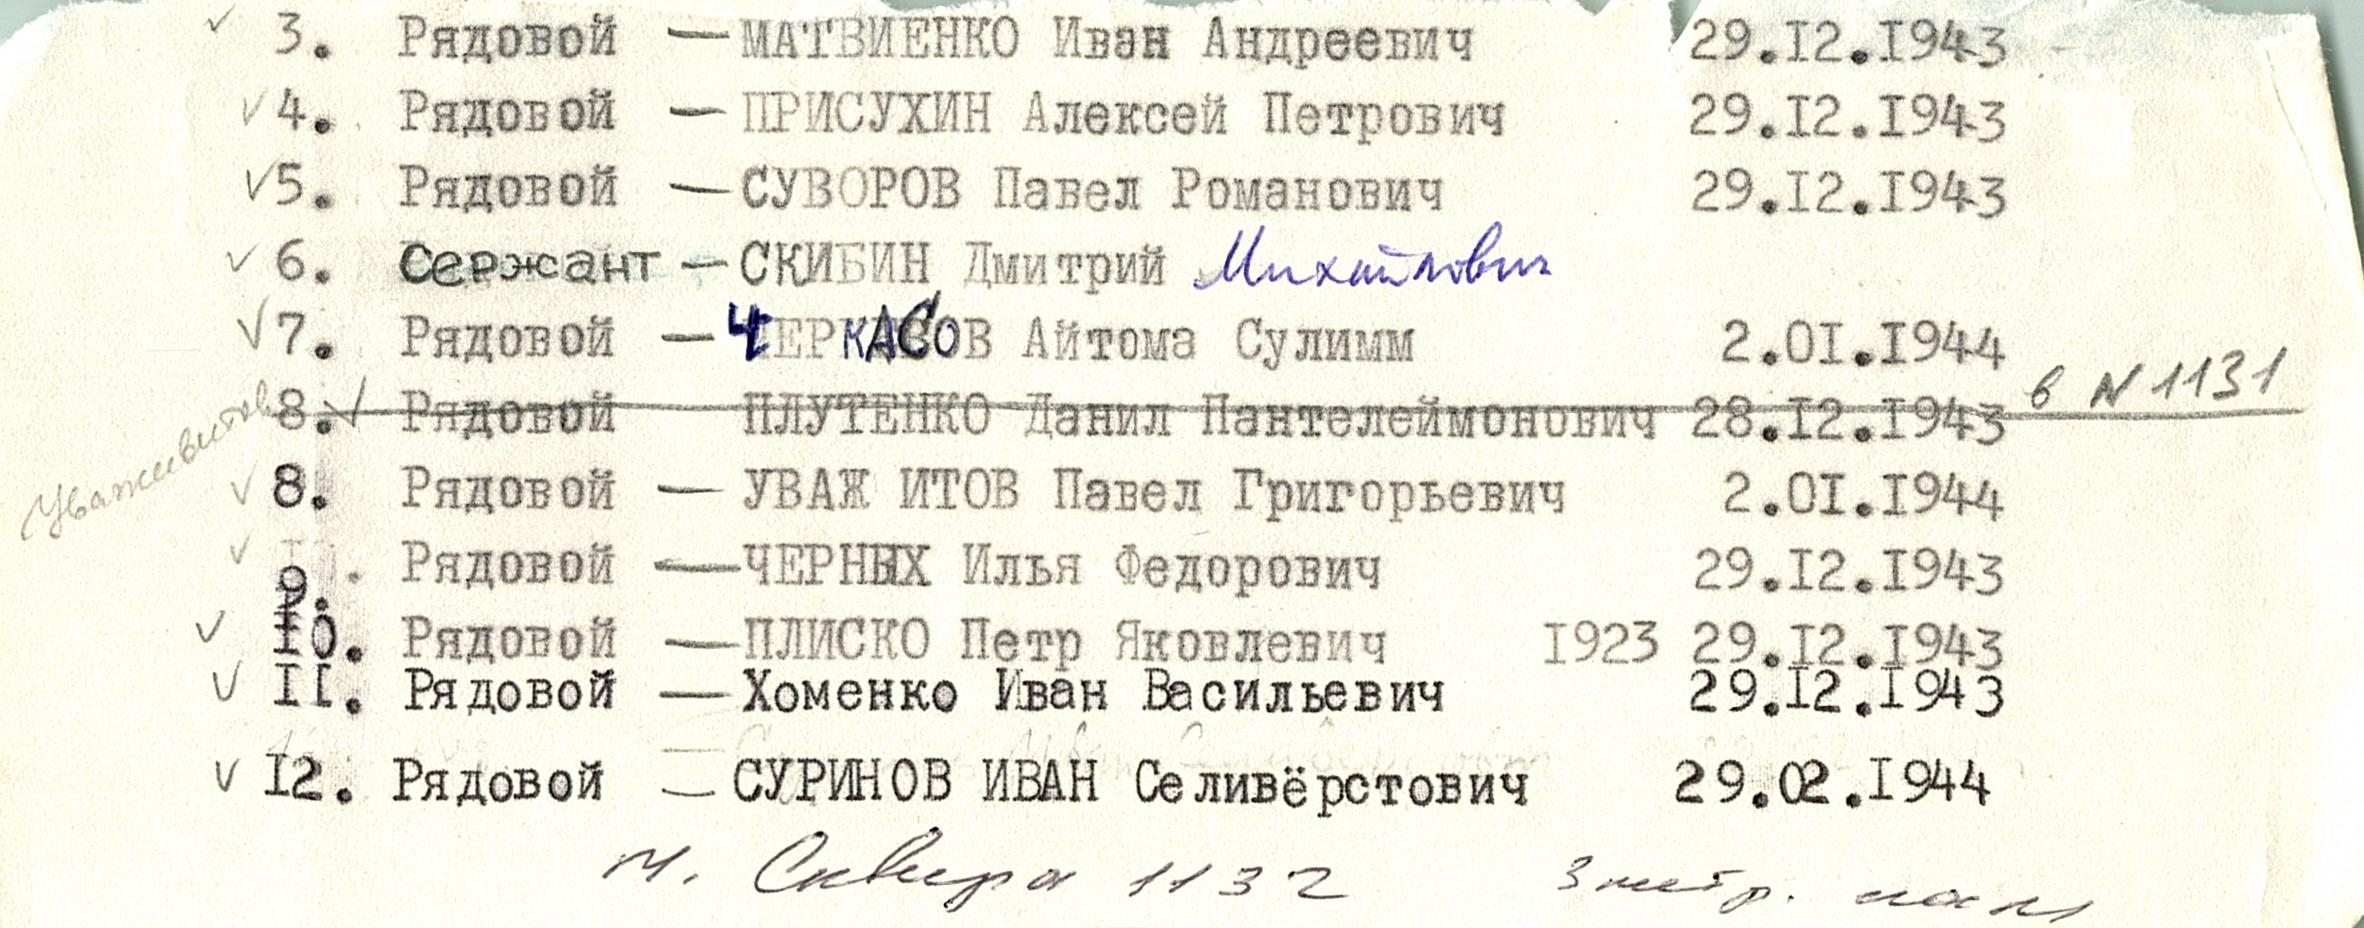 3. Рядовой — МАТВИЕНКО Иван Андреевич 29.I2.I943
4. Рядовой — ПРИСУХИН Алексей Петрович 29.I2.I943
5. Рядовой — СУВОРОВ Павел Романович 29.I2.I943
6. Сержант — СКИБИН Дмитрий Михайлович
7. Рядовой — ЧЕРКАСОВ Айтома Сулимм 2.0I.I944
8. Рядовой ПЛУТЕНКО Данил Пантелеймонович 28.I2.I943 в N 1131
Уваживитов
8. Рядовой — УВАЖ ИТОВ Павел Григорьевич 2.0I.I944
9. Рядовой — ЧЕРНЫХ Илья Федорович 29.I2.I943
I0. Рядовой — ПЛИСКО Петр Яковлевич I923 29.I2.I943
II. Рядовой — Хоменко Иван Васильевич 29.I2.I943
I2. Рядовой — СУРИНОВ ИВАН Селивёрстович 29.02.I944
м. Сквира 1132